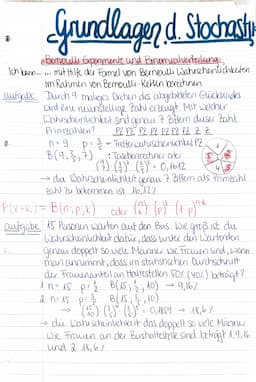 Grundlagen d. Stochastik
Bernoulli Experimente und Binomialverteilung
Ich kann... ... mit Hilfe der Formel von Bernoulli Wahrscheinlichkeiten
im Rahmen von Bernoulli-Ketten berechnen
Aufgabe: Durch 9 maliges Drehen des abgebildeten Glücksrades
wird eine neunstellige Zahl erzeugt. Mit welcher
Wahrscheinlichkeit sind genau 7 Ziffern dieser Zahl
Primzahlen?
n = 9
B(9, , 7) : Taschenrechner oder
= 0,1612
→ die Wahrscheinlichkeit genau 7 Ziffern als Primzahl
Zahl zu bekommen ist 16,12%
P(x=k) = B(n;p;k) oder (n k) (p)^k (1-p)^n-k
Aufgabe: 15 Personen warten auf den Bus. Wie groß ist die
Wahrscheinlichkeit dafür, dass unter den Wartenden
genau doppelt so viele Männer wie Frauen sind, wenn
man annimmt, dass im statistischen Durchschnitt
der Frauenanteil an Haltestellen 50% (40%) beträgt?
1. n = 15 p = 1/2 B(15, 1/2, 10) → 9,16%
2. n = 15 p = 3/5 B(15, 3/5, 10)
→ = 0,1859 → 18,6%
→ die Wahrscheinlichkeit das doppelt so viele Männer
wie Frauen an der Bushaltestelle sind beträgt 1. 9,16
und 2. 18,6%